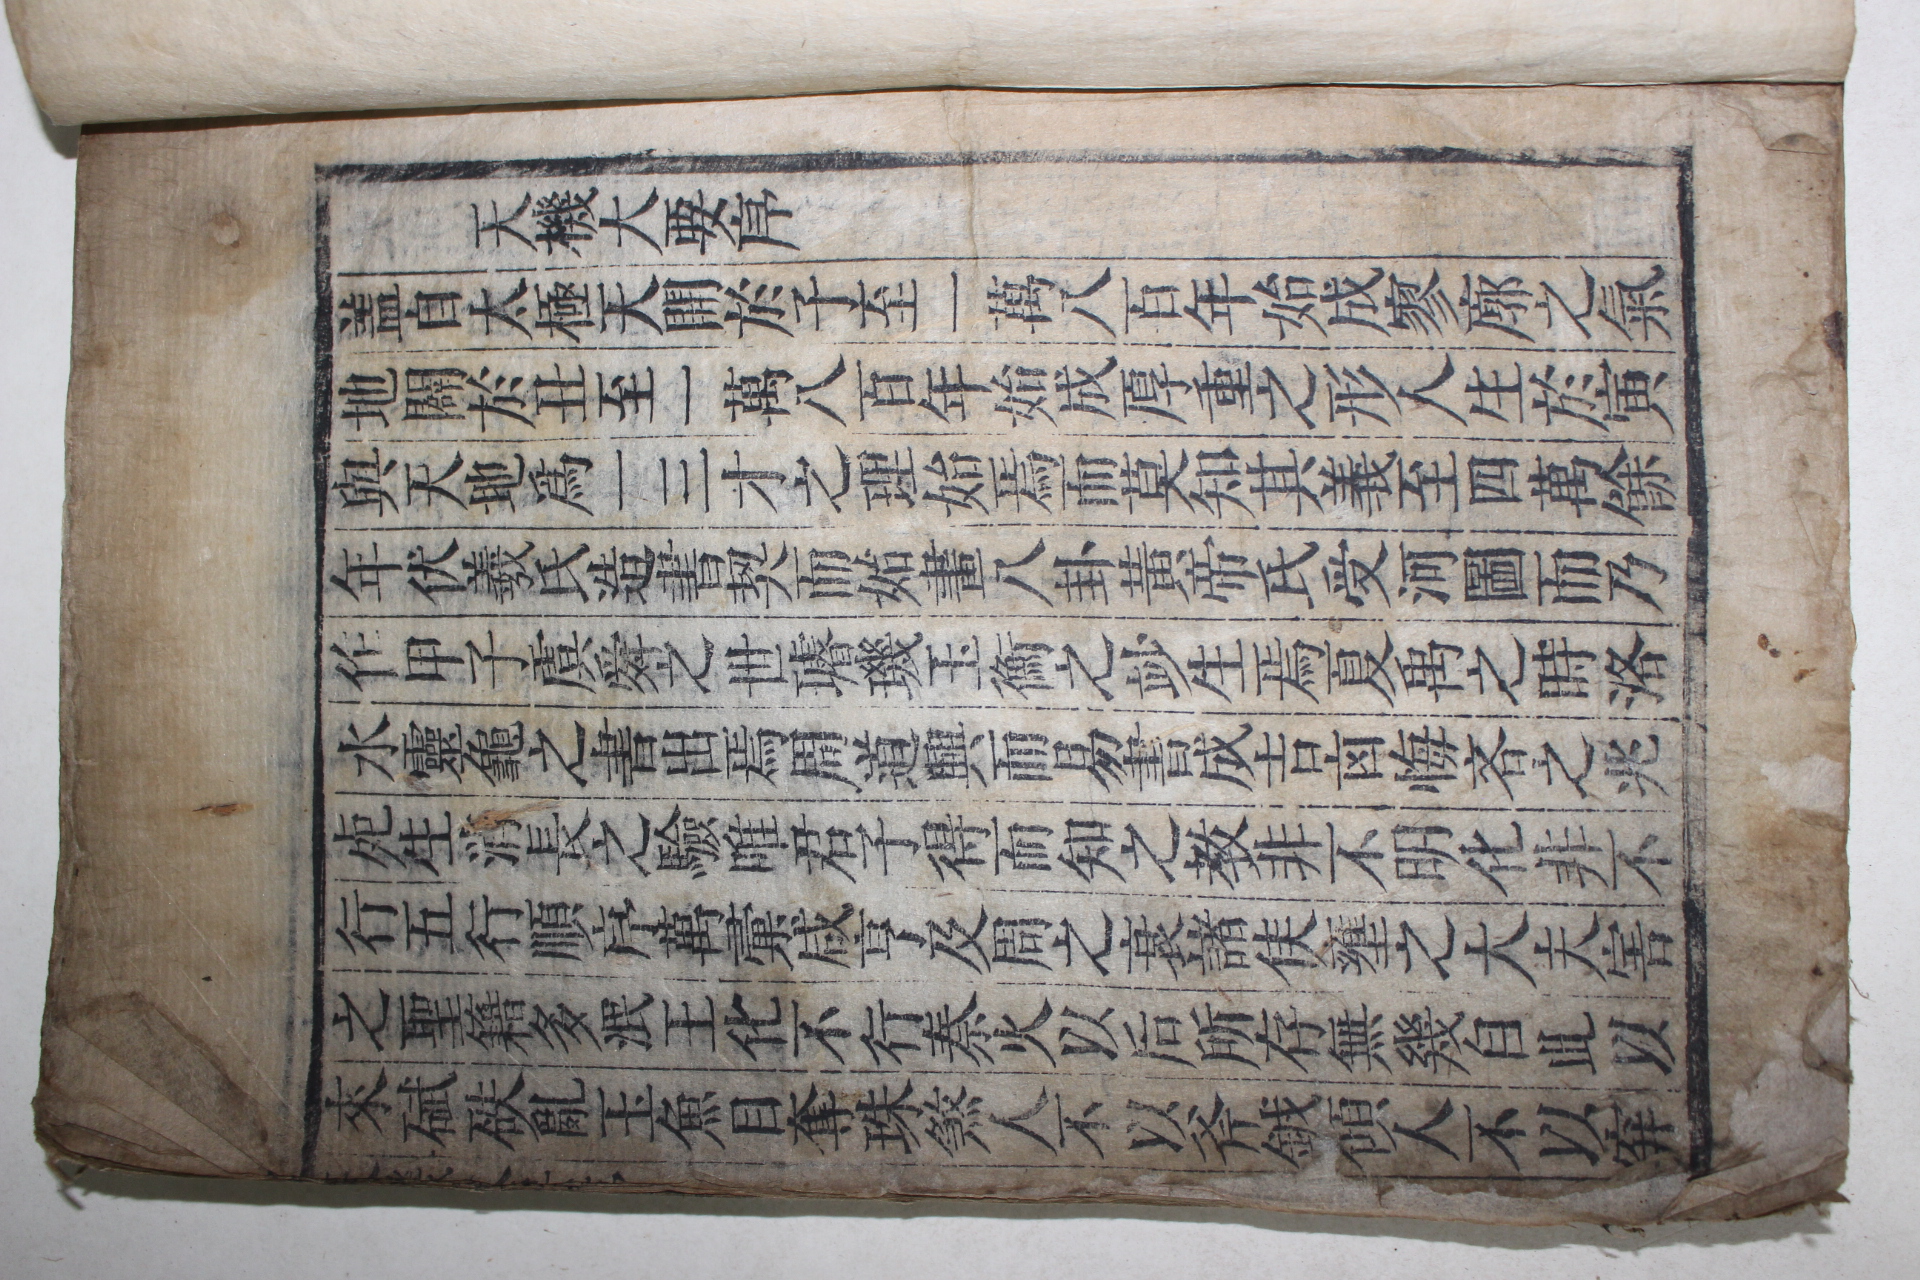 天機大要序
盖自太極天開於子至一萬八百年始成寥廓之氣
地闢於丑至一萬八百年始成厚重之形人生於寅
與天地爲一三才之理始焉而莫知其義至四萬餘
年伏羲氏造書契而始畫八卦黃帝氏受河圖而乃
作甲子虞舜之世璿璣玉衡之妙生焉夏禹之時洛
水靈龜之書出焉周道興而易書成吉凶悔吝之兆
死生消長之驗唯君子得而知之教非不明化非不
行五行順序萬彙咸亨及周之衰諸侯僭之大夫害
之聖籍多泯王化不行秦火以后所存無幾自此以
來碔砆亂玉魚目奪珠煞人不以斧鉞傾人不以穽